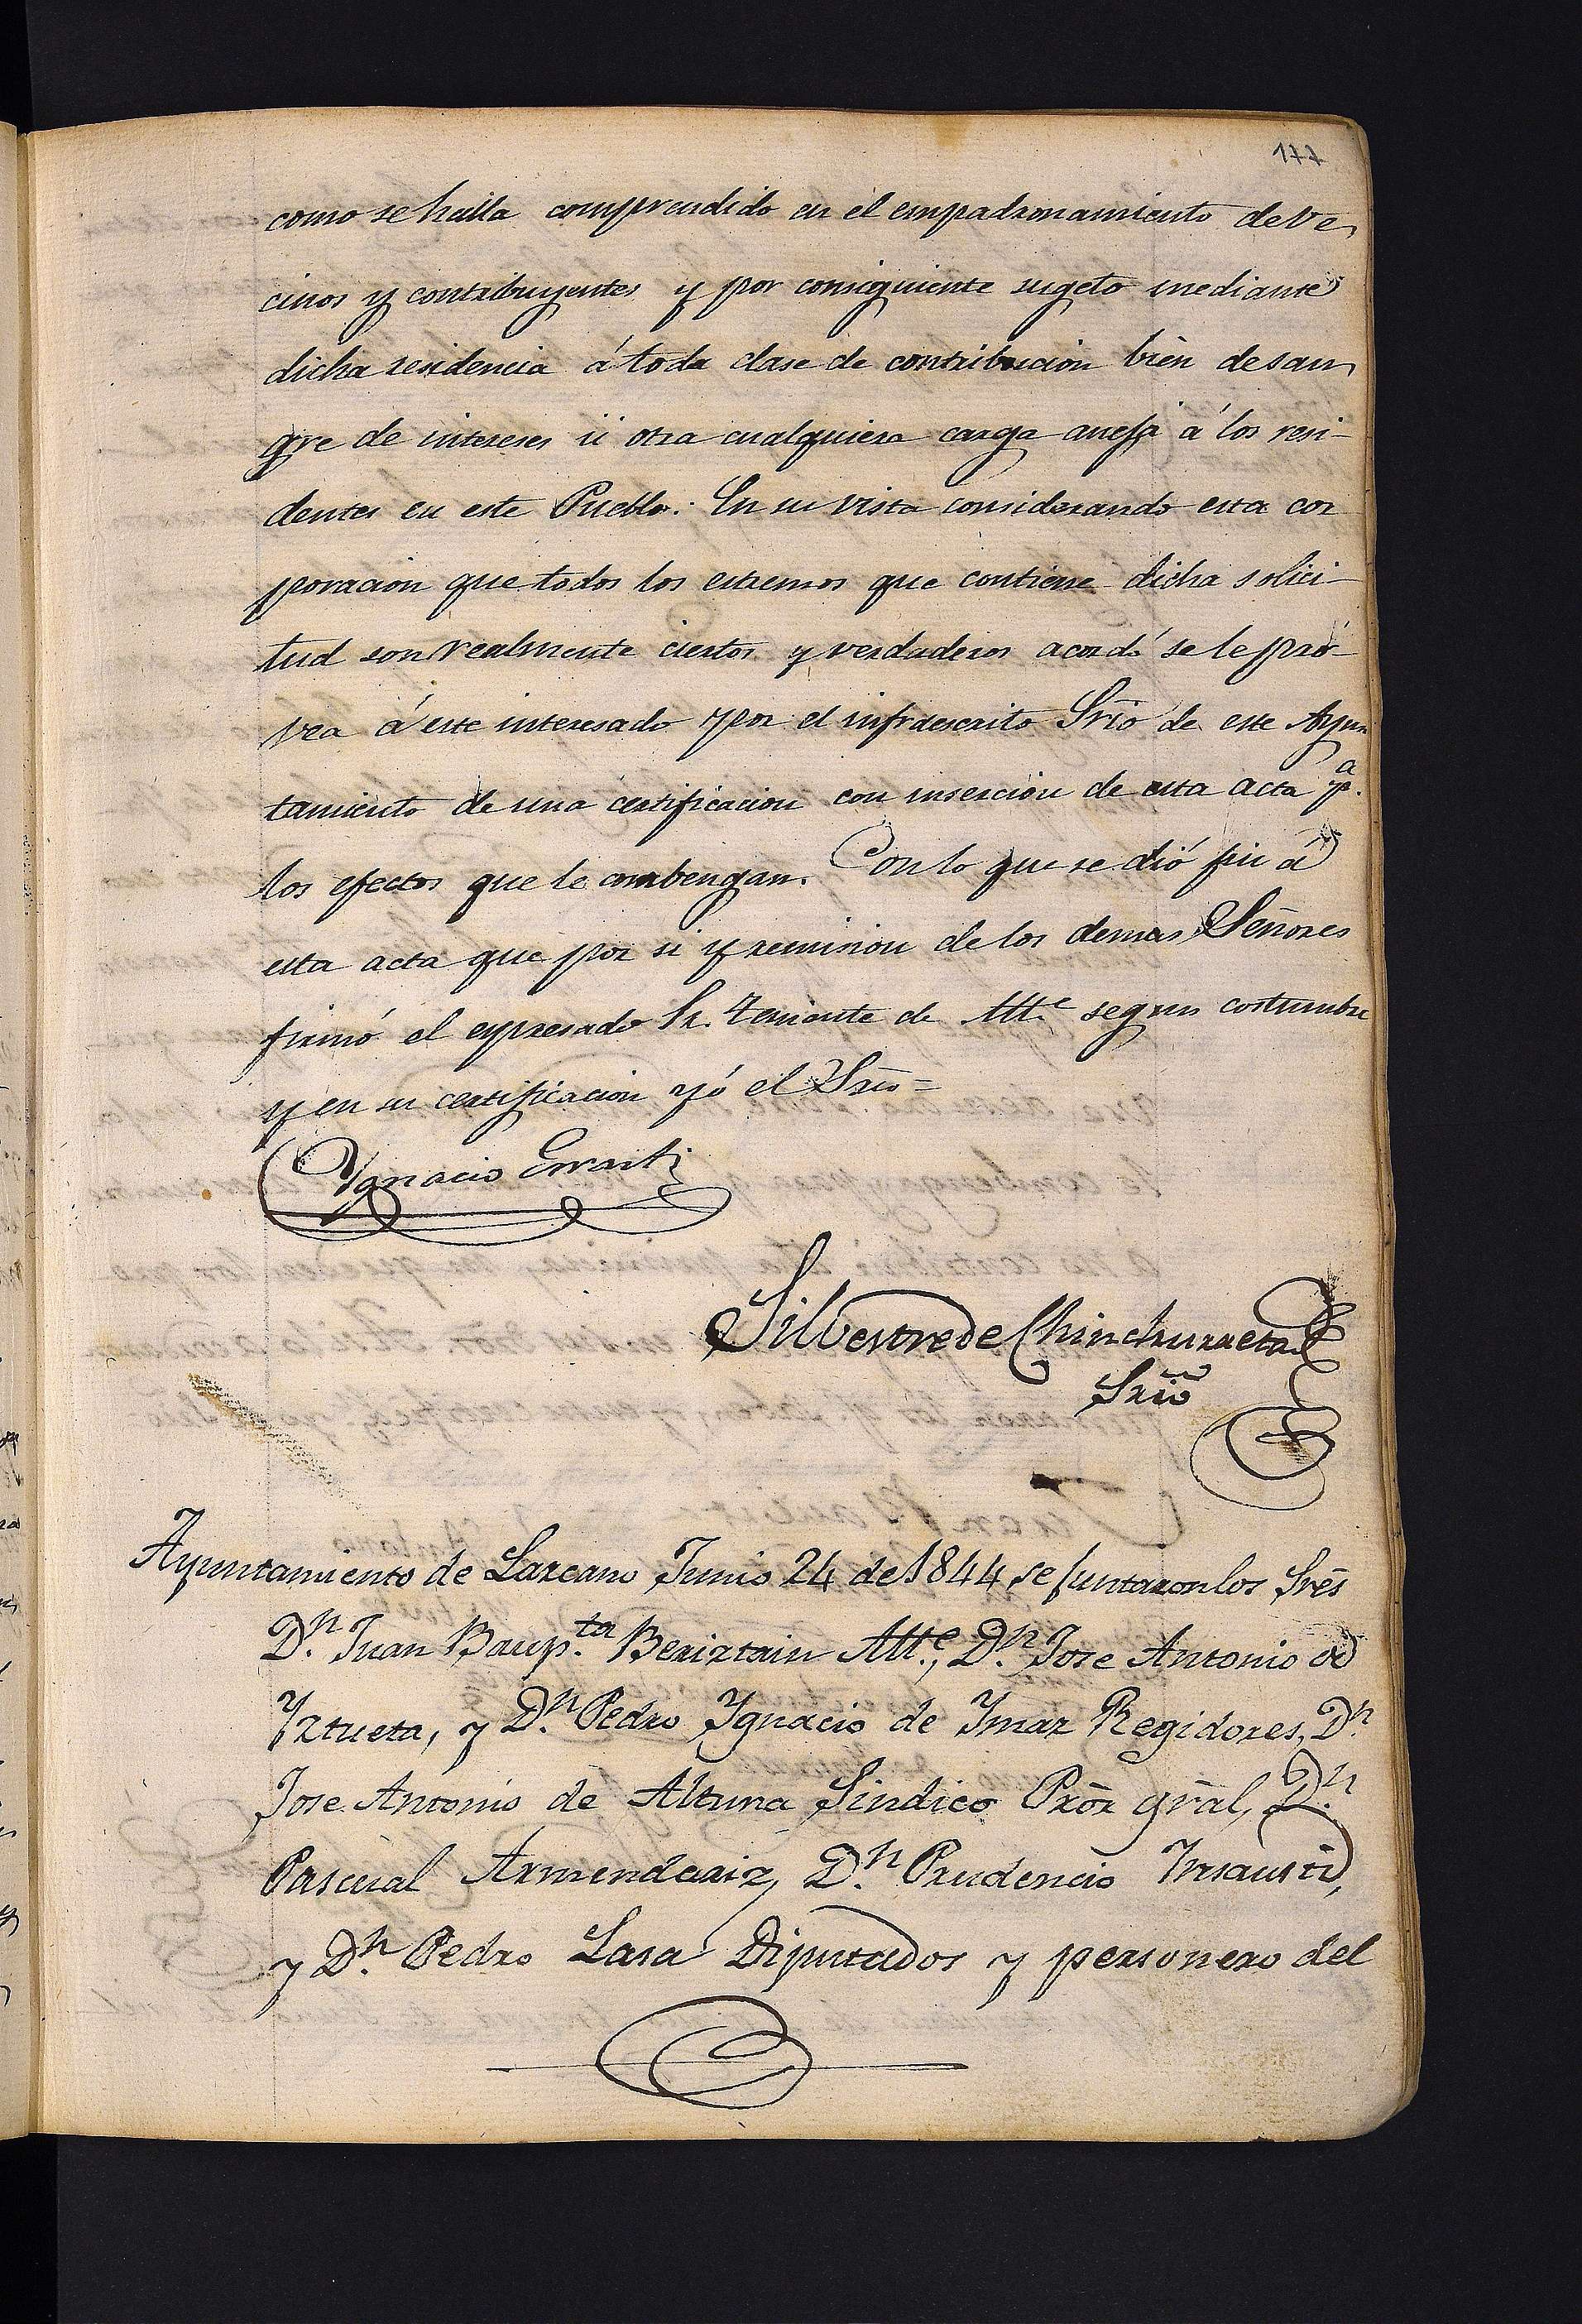 177
como se halla comprendido en el empadronamiento de ve
cinos y contribuyentes y por consiguiente sugeto mediante
dicha residencia á toda clase de contribucion bien de san
gre de intereses ú otra cualquiera carga anefa á los resi-
dentes en este Pueblo. En su vista considerando esta cor
poracion que todos los estremos que contiene dicha solici-
tud son realmente ciertos y verdaderos acordó se le pro-
vea á este interesado por el infraescrito Srio de este Ayun
tamiento de una certificacion con insercion de esta acta p.a
los efectos que le combengan. Con lo que se dió fin á
esta acta que por si y remision de los demas Señores
firmó el espresado Sr. Teniente de Alte segun costumbre
y en su certificacion yó el Srio =
Ygnacio Errasti
Silvestre de Chinchurreta
Srio
Ayuntamiento de Lazcano Junio 24 de 1844 se juntaron los Sres
D.n Juan Baup.ta Beriztain Alte., D.n Jose Antonio de
Yztueta, y D.n Pedro Ygnacio de Ymaz Regidores, D.n
Jose Antonio de Altuna Sindico Pror gral, D.n
Pascual Armendariz, D.n Prudencio Ynsausti,
y D.n Pedro Lasa Diputados y personero del